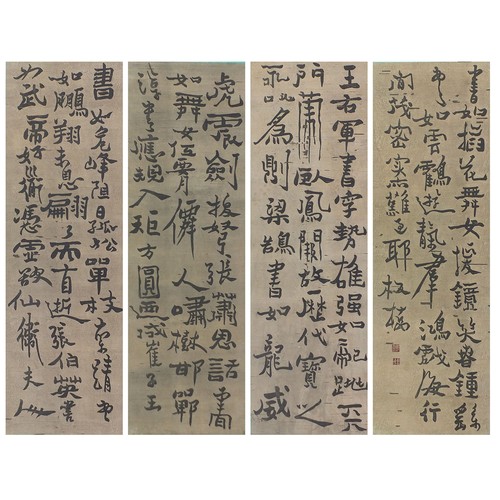 王右軍書字勢雄強如龍跳天
門虎臥鳳閣故歷代寶之
永以為則梁鵠書如龍威
虎震劍拔弩張蕭思話書
如舞女低腰仙人嘯樹邯鄲
淳書應規入矩方圓乃成崔子玉
書如危峰阻日孤松單枝索靖書
如鵬翔未息翩翩而自逝張伯英書
如武帝好道憑虛欲仙衛夫人
書如插花舞女援鏡笑容鍾繇
書如雲鶴遊天群鴻戲海行
間茂密實難過耶板橋